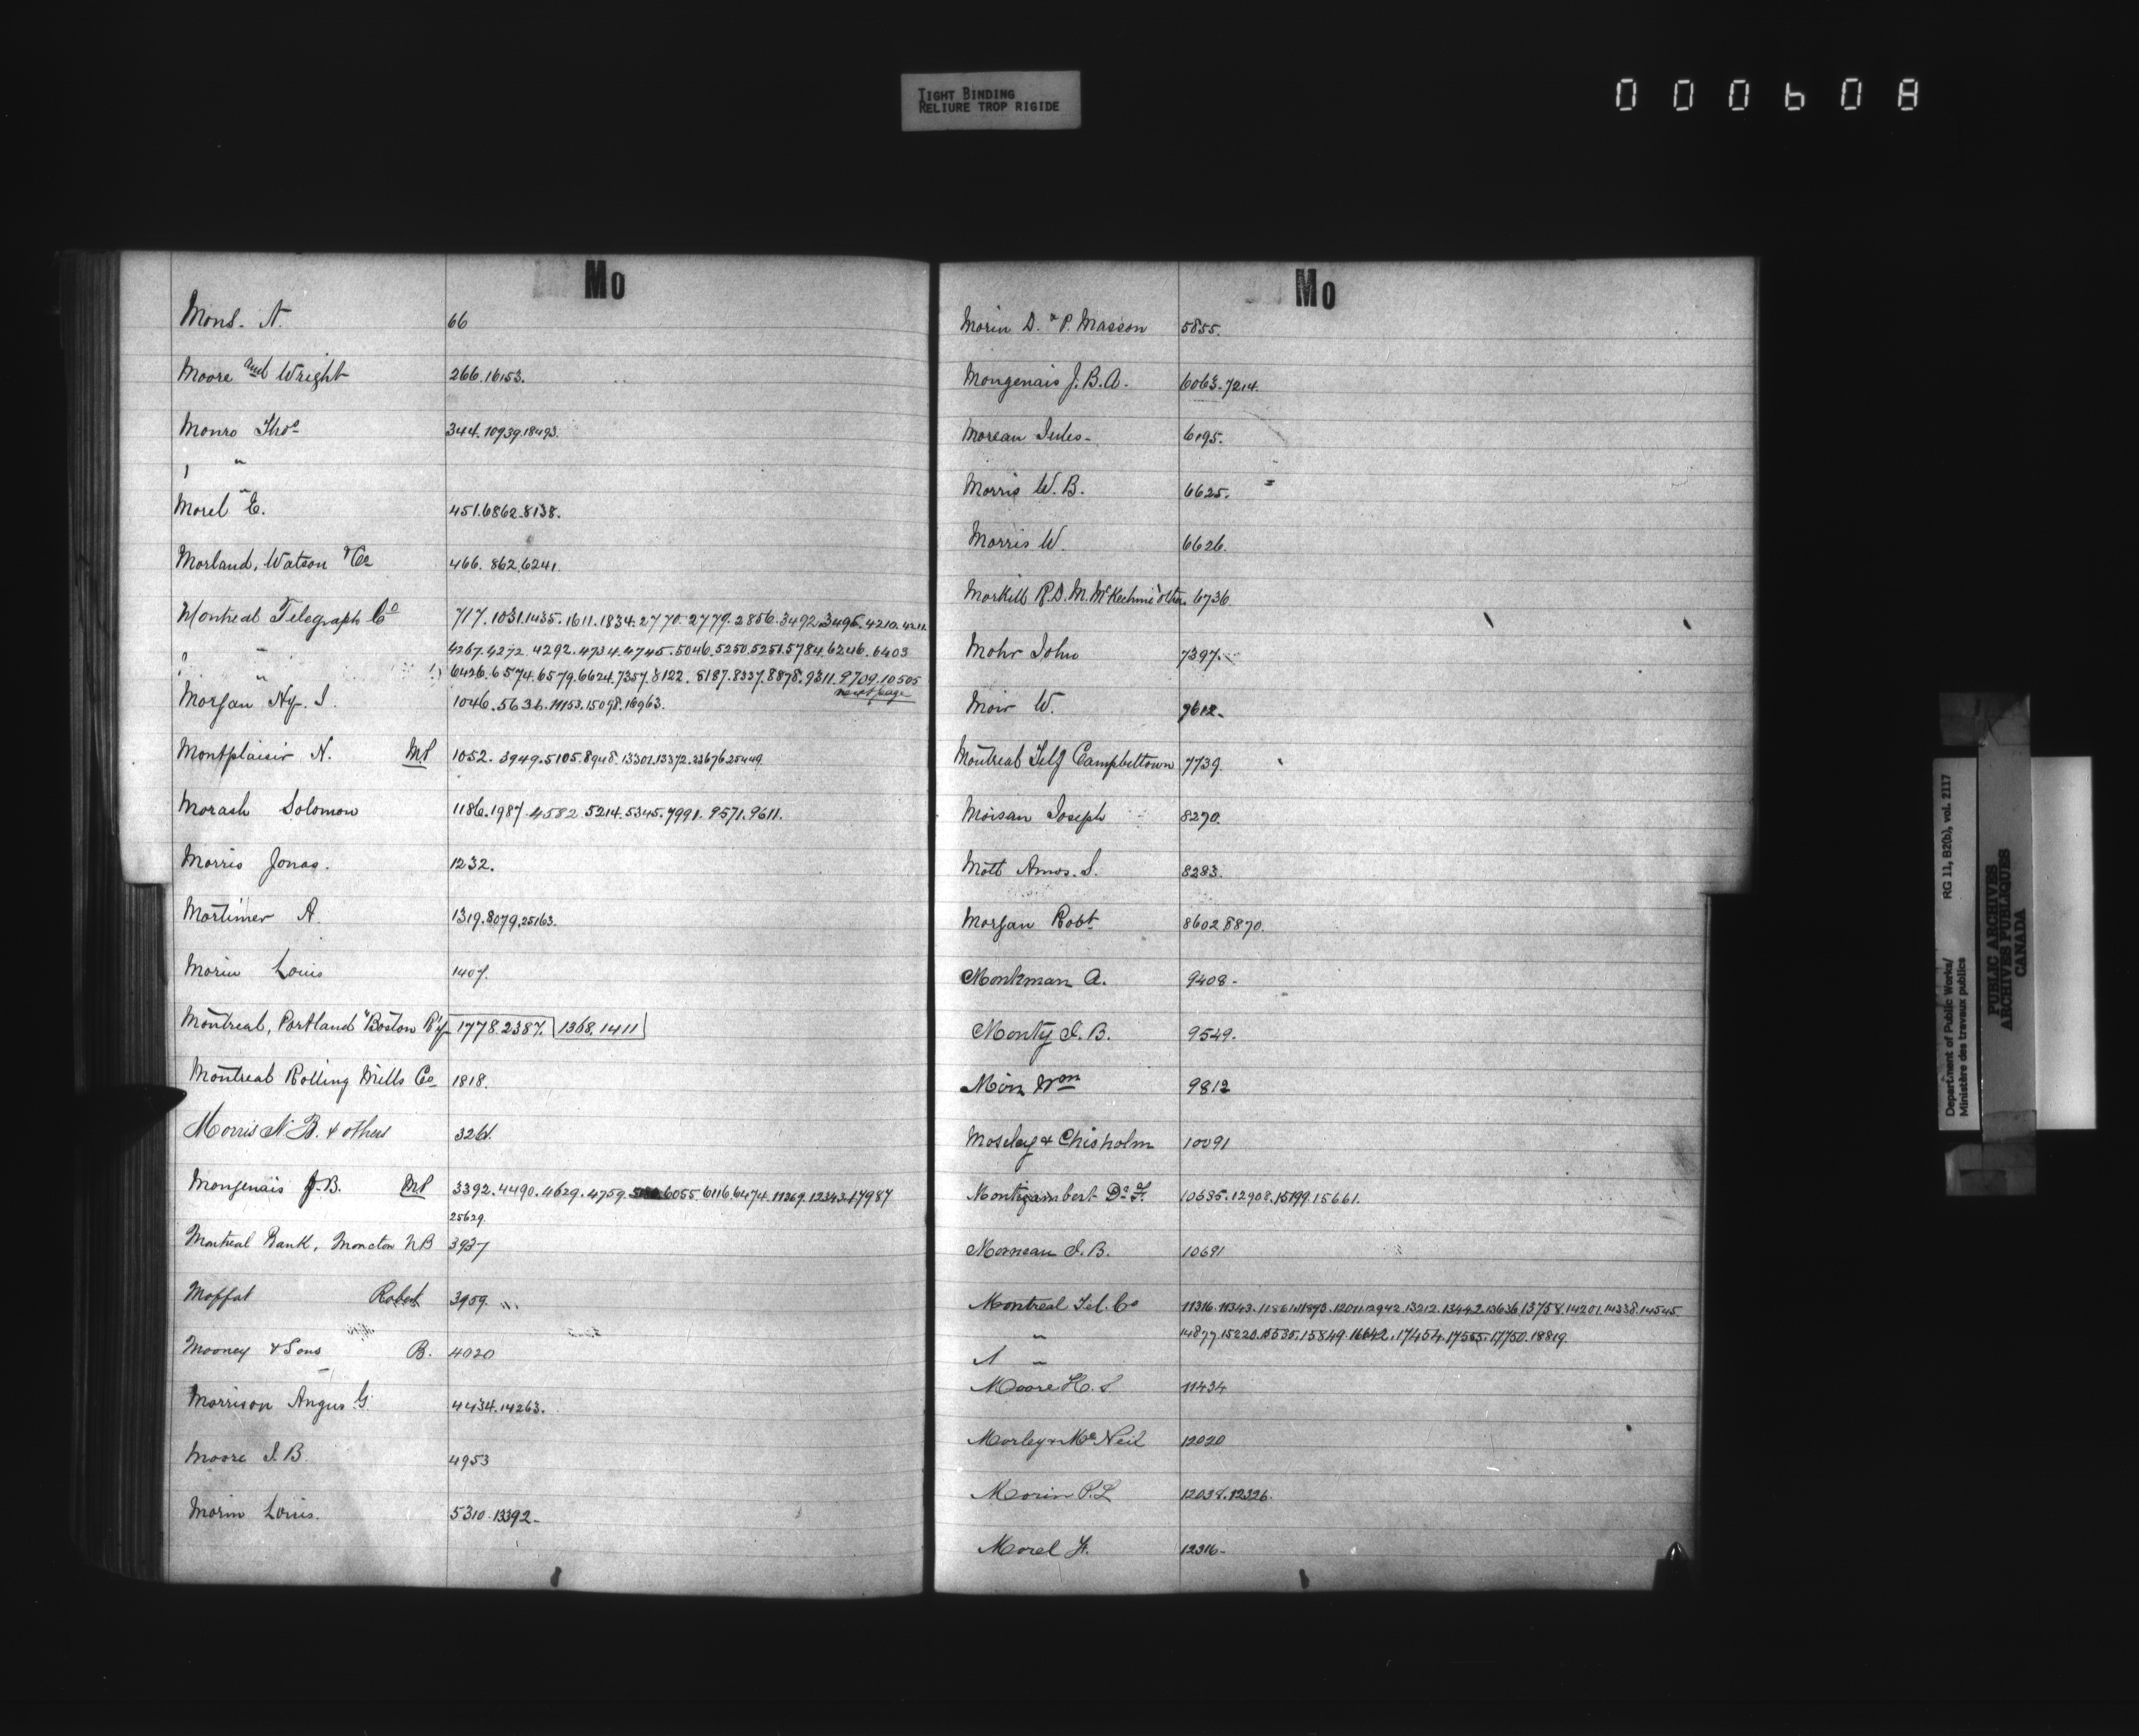 TIGHT BINDING
RELIURE TROP RIGIDE
000608
Mo
Mons. A. 66
Moore and Wright 266.16153.
Monro Thos 344.10939.18493.
" "
Morel E. 451.6862.8138.
Morland, Watson & Co 466.862.6241.
Montreal Telegraph Co 717.1031.1435.1611.1834.2770.2779.2856.3492.3496.4210.4211.
" 4267.4272.4292.4734.4745.5046.5250.5251.5784.6246.6403
" " 6426.6574.6579.6624.7357.8122.8187.8337.8878.9311.9709.10505
next page
Morgan Hy. J. 1046.5636.11153.15098.16963.
Montplaisir N. MP 1052.3949.5105.8948.13301.13372.23676.25449
Morash Solomon 1186.1987.4582.5214.5345.7991.9571.9611.
Morris Jonas. 1232.
Mortimer A. 1319.8079.25163.
Morin Louis 1407.
Montreal, Portland & Boston R'y 1778.2387. 1368.1411
Montreal Rolling Mills Co 1818.
Morris N B. & others 3261.
Mongenais J.B. MP 3392.4490.4629.4759. 6055.6116.6474.11269.12343.17987
25629.
Montreal Bank, Moncton NB 3937
Moffat Robert 3959.
Mooney & Sons B. 4020
Morrison Angus G. 4434.14263.
Moore J. B. 4953
Morin Louis. 5310.13392-
Mo
Morin D. & P. Masson 5855.
Mongenais J. B. A. 6063.7214.
Moreau Jules- 6195.
Morris W. B. 6625.
Morris W. 6626.
Morkill R. D. M. McKechnie & others 6736
Mohr John 7397.
Moir W. 9612-
Montreal Telg Campbelltown 7739.
Moisan Joseph 8270.
Mott Amos. S. 8283.
Morgan Robt 8602.8870.
Monkman A. 9408-
Monty J. B. 9549.
Moir Wm 9812
Moseley & Chisholm 10091
Montizambert Dr F. 10635.12908.15199.15661.
Morneau J. B. 10691
Montreal Tel. Co 11316.11343.11861.11893.12011.12942.13212.13442.13636.13758.14201.14338.14545
" 14877.15220.15535.15849.16642.17454.17555.17750.18819.
" "
Moore H. S 11434
Morley & McNeil 12020
Morin P. L 12038.12326.
Morel F. 12316-
Department of Public Works/ RG 11, B2(b), vol. 2117
Ministère des travaux publics
PUBLIC ARCHIVES
ARCHIVES PUBLIQUES
CANADA